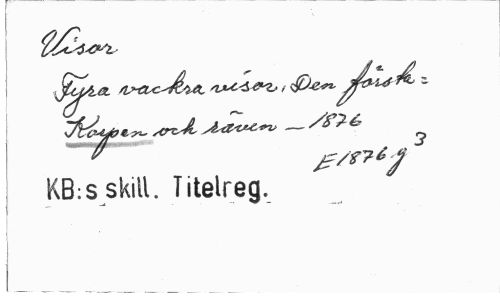 Visor
Fyra vackra visor. Den första:
Korpen och räven – 1876
E1876.g3
KB:s skill. Titelreg.